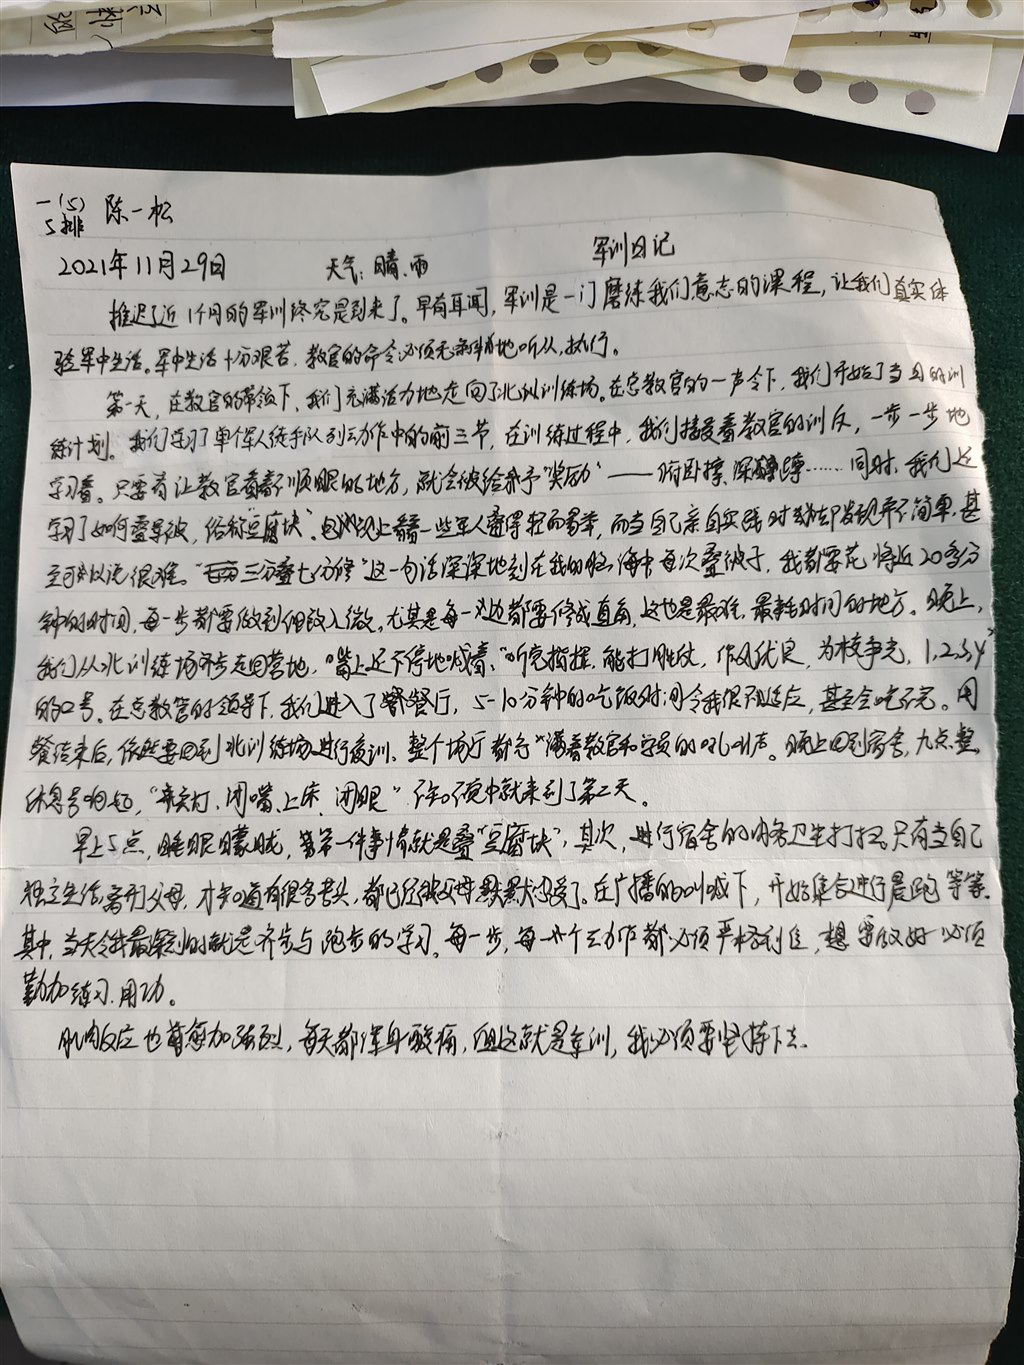 一(5)
5排 陈一松
军训日记
2021年11月29日 天气:晴、雨
推迟了近1个月的军训终究是到来了。早有耳闻,军训是一门磨练我们意志的课程,让我们真实体
验军中生活。军中生活十分艰苦,教官的命令必须无条件地听从,执行。
第一天,在教官的带领下,我们充满活力地走向了北训练场。在总教官的一声令下,我们开始了当日的训
练计划。我们学习了单个军人徒手队列动作中的前三节,在训练过程中,我们接受着教官的训斥,一步一步地
学习着。只要有让教官看着不顺眼的地方,就会被给予"奖励"——俯卧撑、深蹲……同时,我们还
学习了如何叠军被,俗称"豆腐块"。电视上看一些军人叠得轻而易举,而当自己亲自实践时却发现并不简单,甚
至可以说很难。"三分叠七分修"这一句话深深地刻在我的脑海中每次叠被子,我都要花将近20多分
钟的时间,每一步都要做到细致入微,尤其是每一边都要修成直角,这也是最难、最耗时间的地方。晚上,
我们从北训练场齐步走回营地,嘴上还不停地喊着,"听党指挥,能打胜仗,作风优良,为校争光,1,2,3,4"
的口号。在总教官的领导下,我们进入了餐厅,5-10分钟的吃饭时间令我很不适应,甚至会吃不完。用
餐结束后,依然要回到北训练场进行夜训、整个场厅都荡漾着教官和学员的吼叫声。晚上回到宿舍,九点整,
休息号响起,"关灯、闭嘴、上床、闭眼"
早上5点,睡眼朦胧,第一件事情就是叠"豆腐块",其次,进行宿舍的内务卫生打扫。只有当自己
独立生活,离开父母,才知道有很多苦头,都已经被父母默默承受了。在广播的叫喊下,开始集合进行晨跑等等。
其中,当天令我最深刻的就是齐步与跑步的学习。每一步,每一个动作都必须严格到位,想要做好必须
勤加练习、用功。
肌肉反应也愈加强烈,每天都浑身酸痛,但这就是军训,我必须要坚持下去。